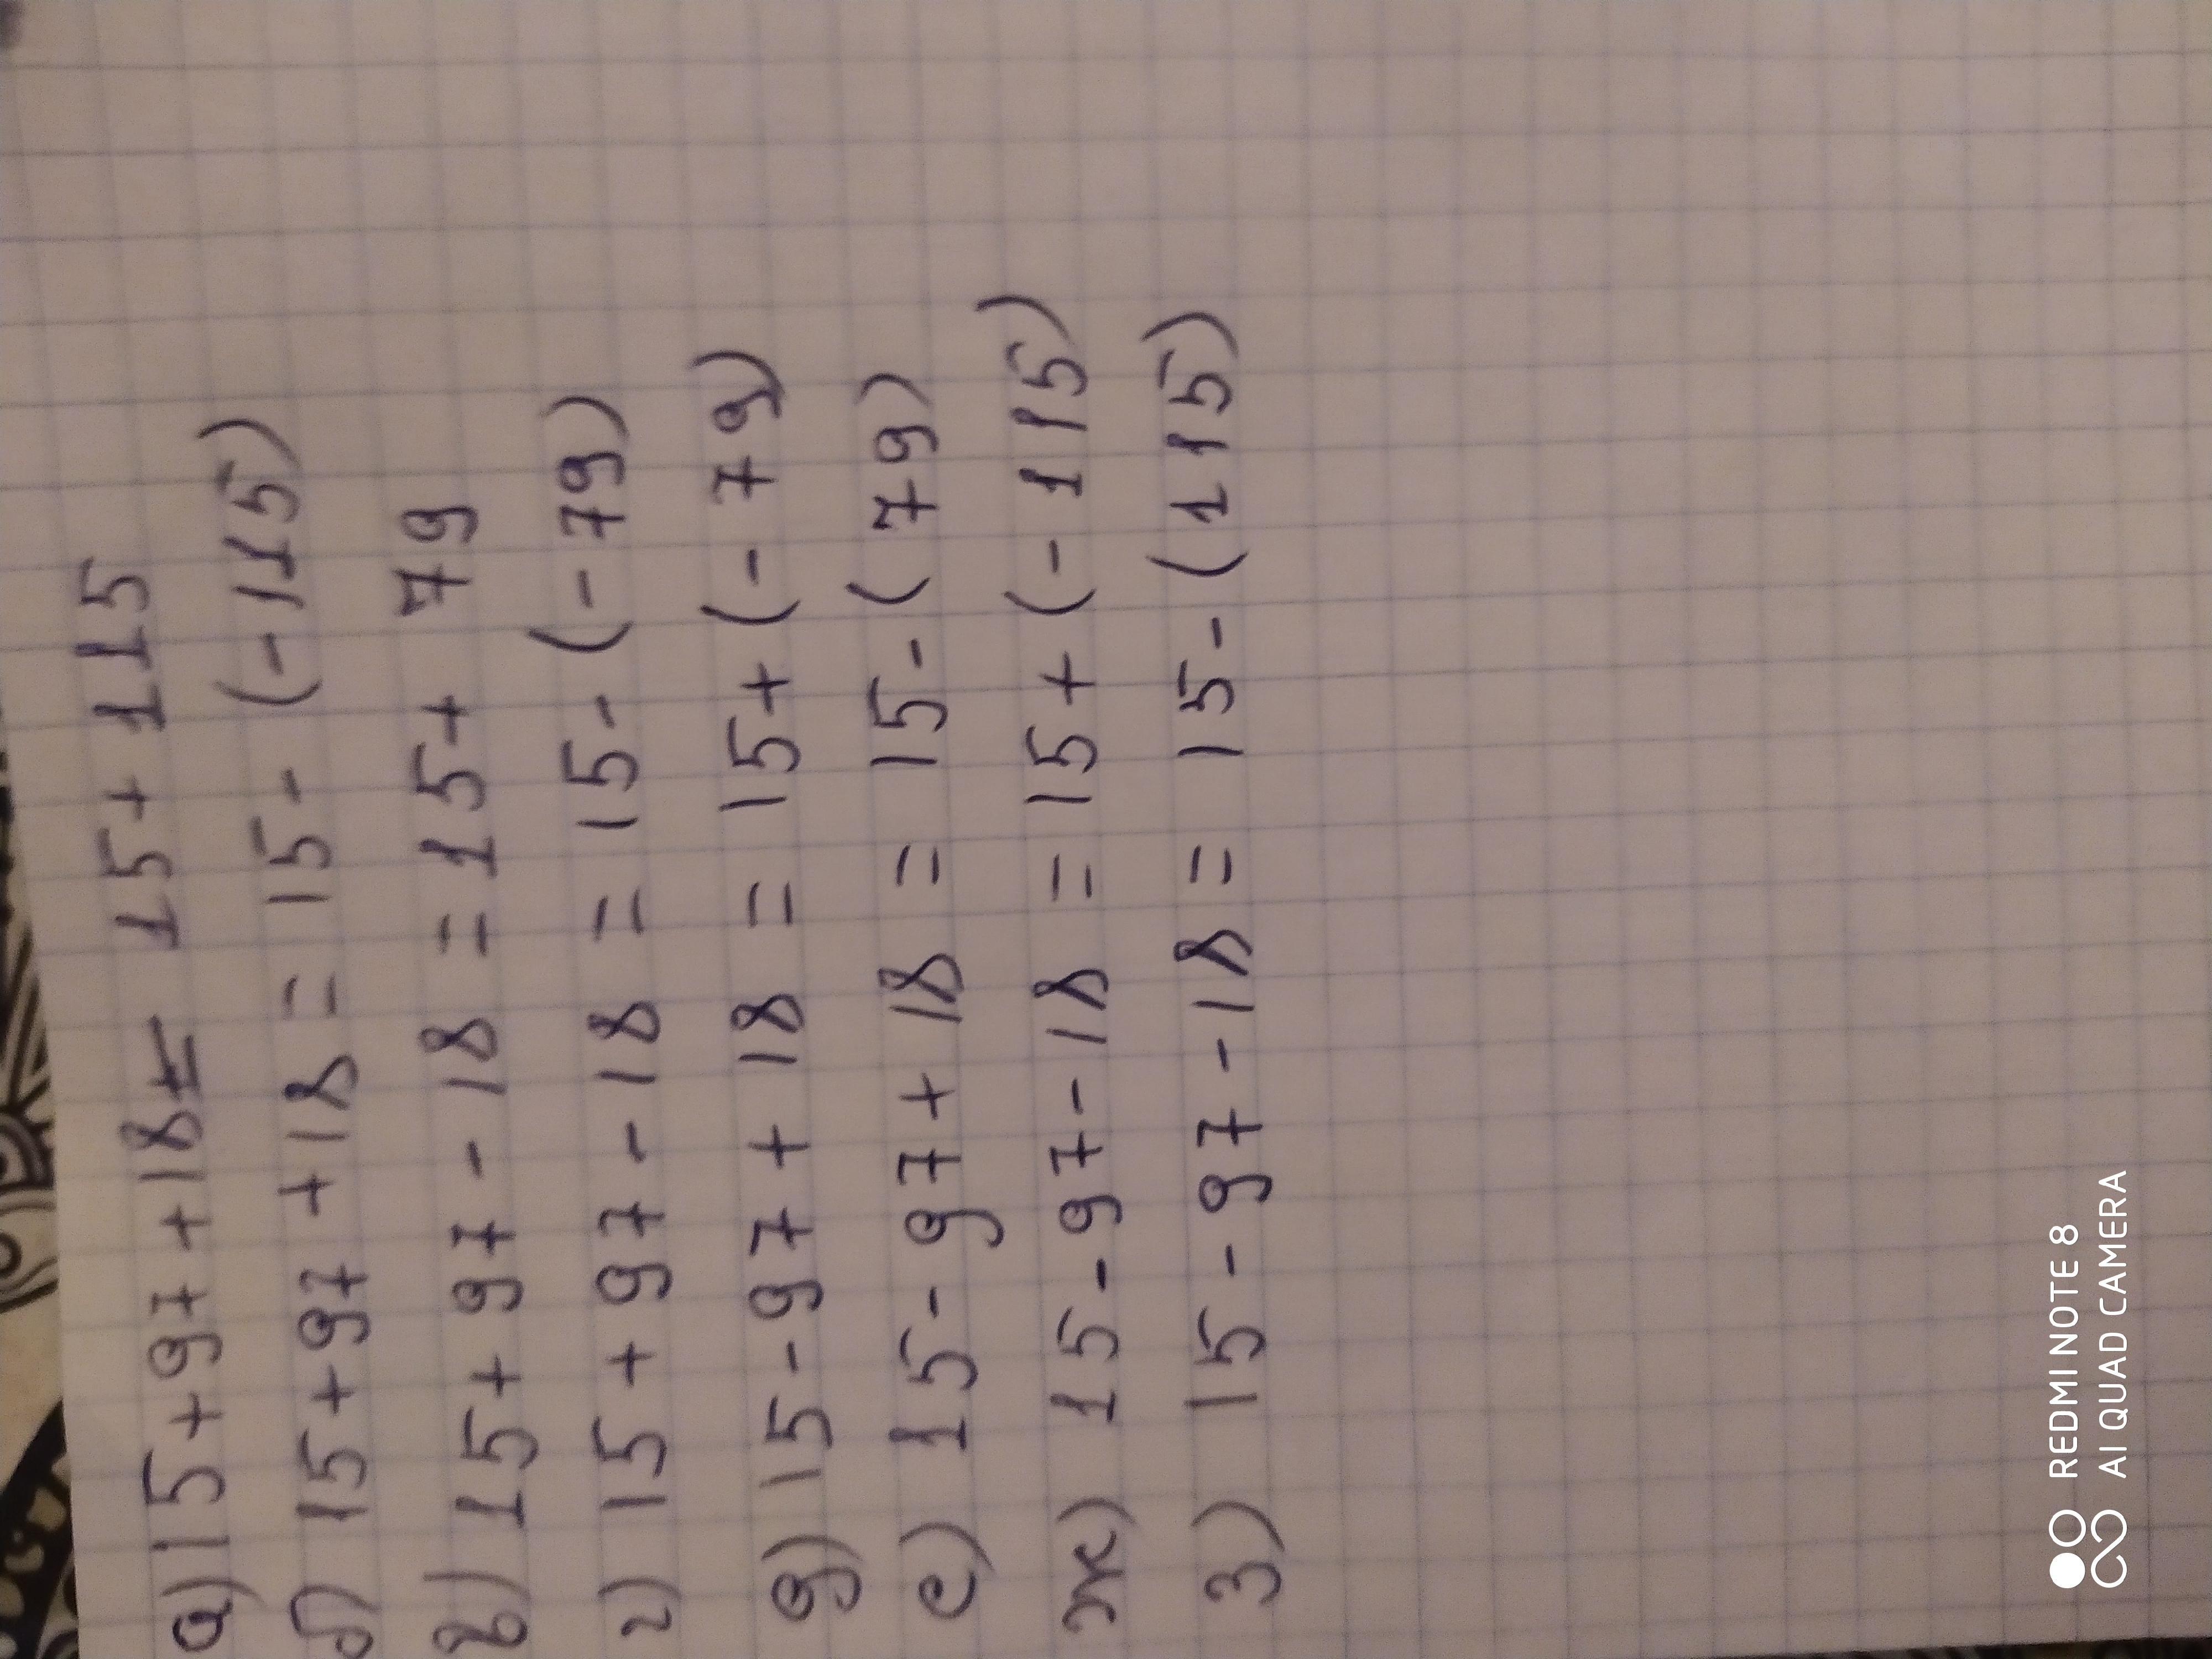 а) 15+97+18= 15+115
б) 15+97+18= 15-(-115)
в) 15+97-18=15+ 79
г) 15+97-18=15-(-79)
д) 15-97+18=15+(-79)
е) 15-97+18= 15-(79)
ж) 15-97-18=15+(-115)
з) 15-97-18= 15-(115)
REDMI NOTE 8
AI QUAD CAMERA